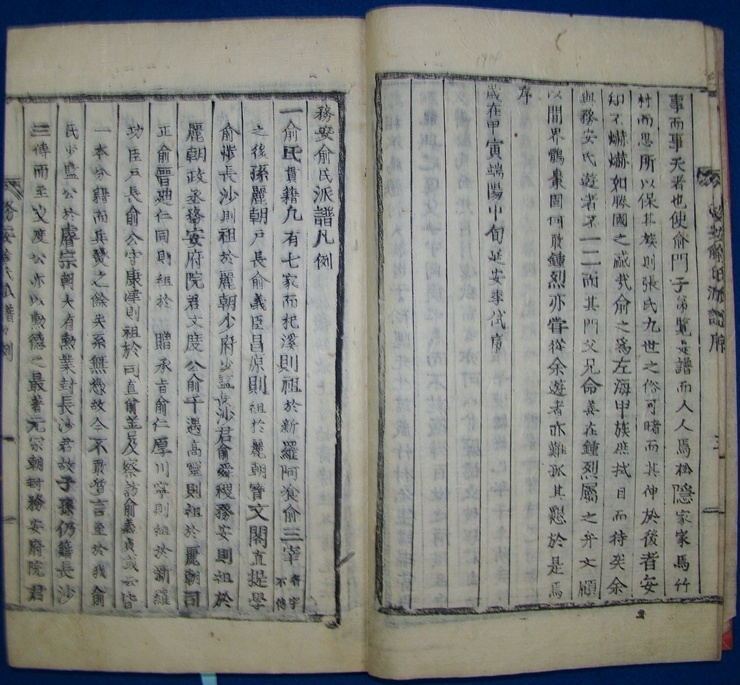 事而事天者也使俞門子弟覽是譜而人人馬松隱家家馬竹
村而思所以保其族則張氏九世之俗可睹而其伸於後者安
知不爀爀如勝國之盛哉俞之爲左海甲族應拭目而待矣余
與務安氏遊者不一二而其門父兄命姜在鍾烈屬之弁文顧
以間界鶴粟固何股鍾烈亦嘗從余遊者亦難孤其懇於是爲
序
歲在甲寅端陽中旬延安李代序
務安俞氏派譜序
務安俞氏派譜凡例
一俞氏貫籍凡有七家而杞溪則祖於新羅阿飡俞三宰
之後孫麗朝戶長俞義臣昌原則祖於麗朝寶文閣直提學
俞 長沙則祖於麗朝少府少監長沙君俞舜稷務安則祖於
麗朝政丞務安府院君文度公俞千遇高靈則祖於麗朝司
正俞晋迪仁同則祖於 贈承旨俞仁厚川寧則祖於新羅
功臣戶長俞公 康津則祖於司直俞 及察訪俞 或云皆
一本分籍而兵燹之餘失系無憑故今不敢質言至於我俞
氏少監公於睿宗朝大有勲業封長沙君故子孫仍籍長沙
三傳而至文度公亦以勲德之最著元宗朝封務安府院君
務安俞氏派譜凡例